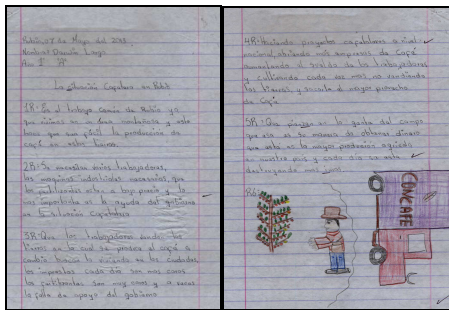 Rubio, 08 de Mayo del 2013
Nombre: Danilo Lugo
Año 1° "A"
La Situación Cafetera en Rubio
1R: Es el trabajo Común de Rubio ya
que vivimos en un área montañosa y esto
hace que sea fácil la producción de
café en estas tierras.
2R: Se necesitan varios trabajadores,
las maquinas industriales necesarias, que
los fertilizantes esten a bajo precio y lo
mas importante es la ayuda del gobierno
en la situación Cafetalera
3R: Que los trabajadores venden las
tierras en la cual se produce el café a
cambio buscan la vivienda en las ciudades,
los impuestos cada día son mas caros
los fertilizantes son muy caros y a veces
la falta de apoyo del gobierno
4R: Haciendo proyectos capetaleros a nivel
nacional, abriendo más empresas de Café
aumentando el sueldo de los trabajadores
y cultivando cada dia mas, no vendiendo
las tierras, y sacarle el mayor provecho
de Café
5R: Que piense en la gente del campo
que esa es su manera de obtener dinero
que esta es la mayor producción agricola
en nuestro país y cada día se está
destruyendo mas
R6:
CONCAFE